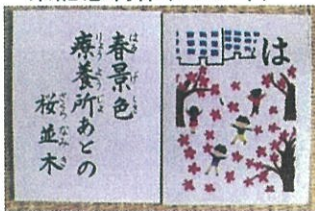 は
春景色
療養所あとの
桜並木